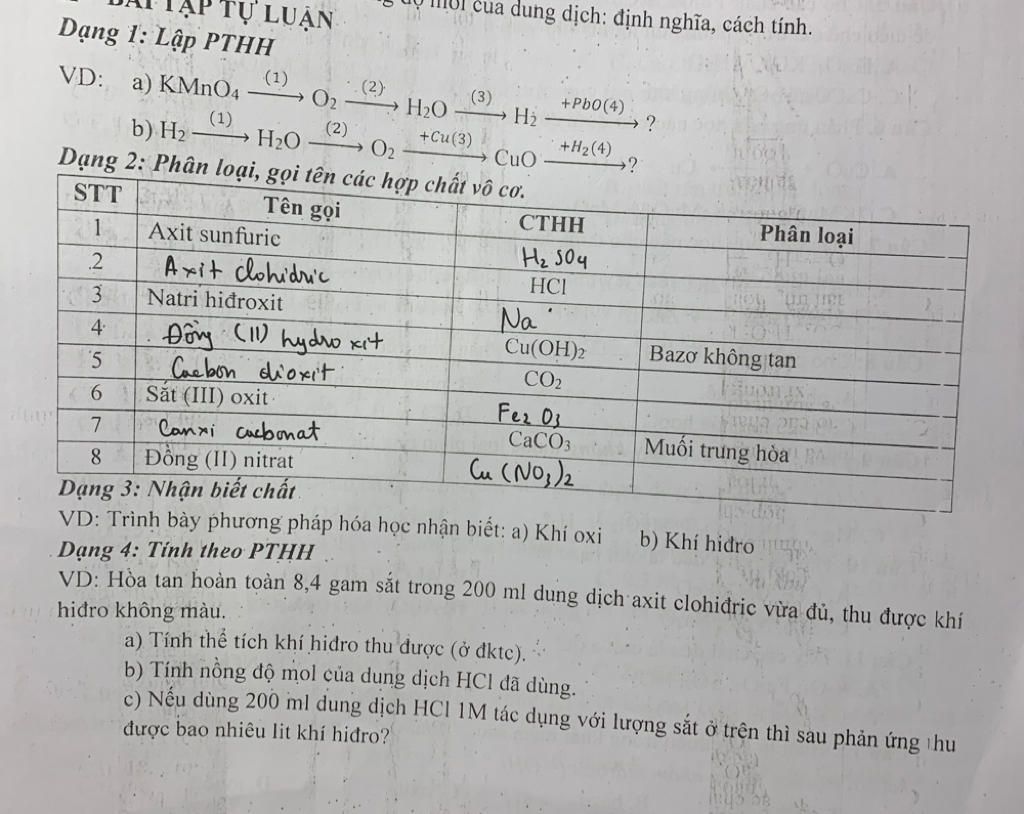 BÀI TẬP TỰ LUẬN
mol của dung dịch: định nghĩa, cách tính.
Dạng 1: Lập PTHH
VD: a) KMnO4 (1)→ O2 (2)→ H2O (3)→ H2 +PbO(4)→ ?
b) H2 (1)→ H2O (2)→ O2 +Cu(3)→ CuO +H2(4)→?
Dạng 2: Phân loại, gọi tên các hợp chất vô cơ.
STT Tên gọi CTHH Phân loại
1 Axit sunfuric H2SO4
2 Axit clohidric HCl
3 Natri hiđroxit Na
4 Đồng (II) hydro xit Cu(OH)2 Bazơ không tan
5 Cacbon dioxit CO2
6 Sắt (III) oxit Fe2O3
7 Canxi cacbonat CaCO3 Muối trung hòa
8 Đồng (II) nitrat Cu(NO3)2
Dạng 3: Nhận biết chất
VD: Trình bày phương pháp hóa học nhận biết: a) Khí oxi b) Khí hiđro
Dạng 4: Tính theo PTHH
VD: Hòa tan hoàn toàn 8,4 gam sắt trong 200 ml dung dịch axit clohiđric vừa đủ, thu được khí
hiđro không màu.
a) Tính thể tích khí hiđro thu được (ở đktc).
b) Tính nồng độ mol của dung dịch HCl đã dùng.
c) Nếu dùng 200 ml dung dịch HCl 1M tác dụng với lượng sắt ở trên thì sau phản ứng thu
được bao nhiêu lit khí hiđro?